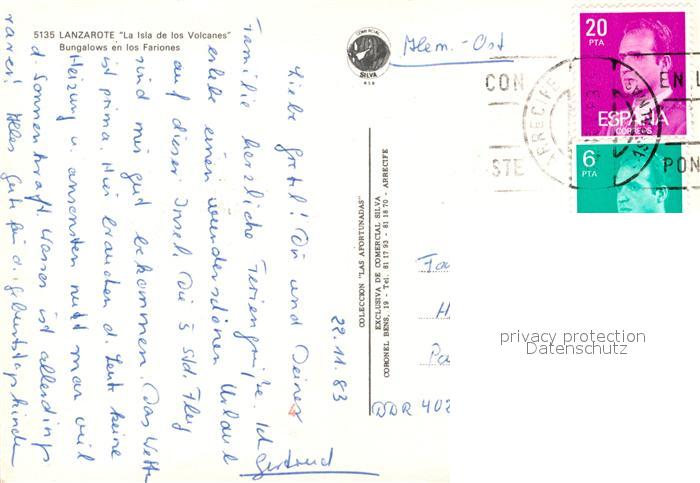 5135 LANZAROTE "La Isla de los Volcanes"
Bungalows en los Fariones
22.11.83
Liebe Gretel! Dir und Deiner
Familie herzliche Feriengrüße. Ich
erlebe einen wunderschönen Urlaub
auf dieser Insel. Die 5 std. Flug
sind mir gut bekommen. Das Wetter
ist prima. Hier brauchen d. Leute keine
Heizung u. ansonsten nutzt man viel
d. Sonnenkraft. Wasser ist allerdings
rarer! Alles Gute für d. Geburtstagskinder
Gertrud
COMERCIAL
SILVA
COLECCION "LAS AFORTUNADAS"
EXCLUSIVA DE COMERCIAL SILVA
CORONEL BENS, 19 - Tel. 81 17 93 - 81 18 70 - ARRECIFE
Alem.-Ost
20
PTA
ESPAÑA
CORREOS
6
PTA
CON
EN L
STE
PON
ARRECIFE
Fa
H
Pa
DDR 402
privacy protection
Datenschutz